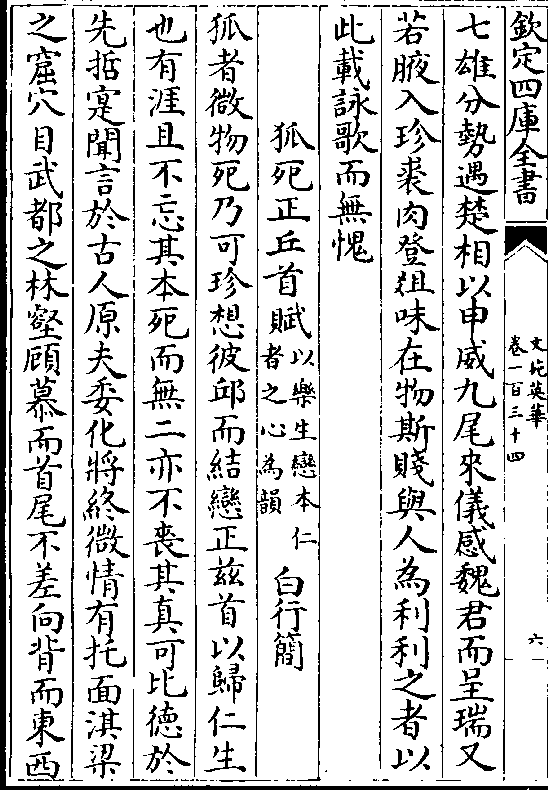 欽定四庫全書
文苑英華
卷一百三十四
六
七雄分勢遇楚相以申威九尾來儀感魏君而呈瑞又
若腋入珍裘肉登俎味在物斯賤與人為利利之者以
此載詠歌而無愧
狐死正丘首賦以樂生戀本仁者之心為韻 白行簡
狐者微物死乃可珍想彼邱而結戀正茲首以歸仁生
也有涯且不忘其本死而無二亦不喪其真可比德於
先哲寔聞言於古人原夫委化將終微情有托面淇梁
之窟穴目武都之林壑顧慕而首尾不差向背而東西